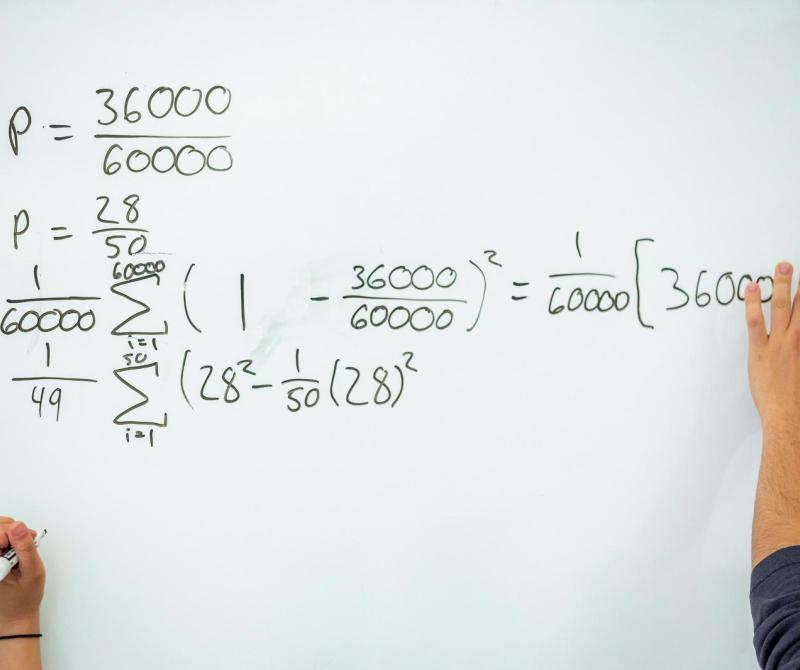 P = 36000/60000
P = 28/50
1/60000 60000∑i=1 (1 - 36000/60000)² = 1/60000 [36000
1/49 50∑i=1 (28² - 1/50 (28)²